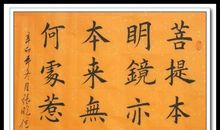 菩提本
明鏡亦
本来無
何處惹
辛卯年